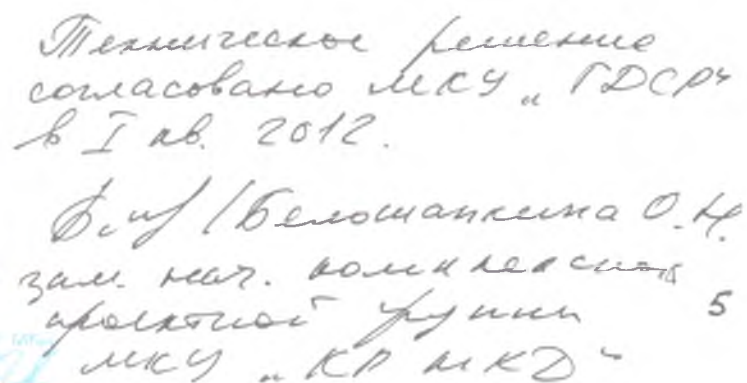 Техническое решение
согласовано МКУ „ГДСР“
в I кв. 2012.
/Белошапкина О.Н.
зам. нач. комплексной
проектной группы
5
МКУ „КР МКД“